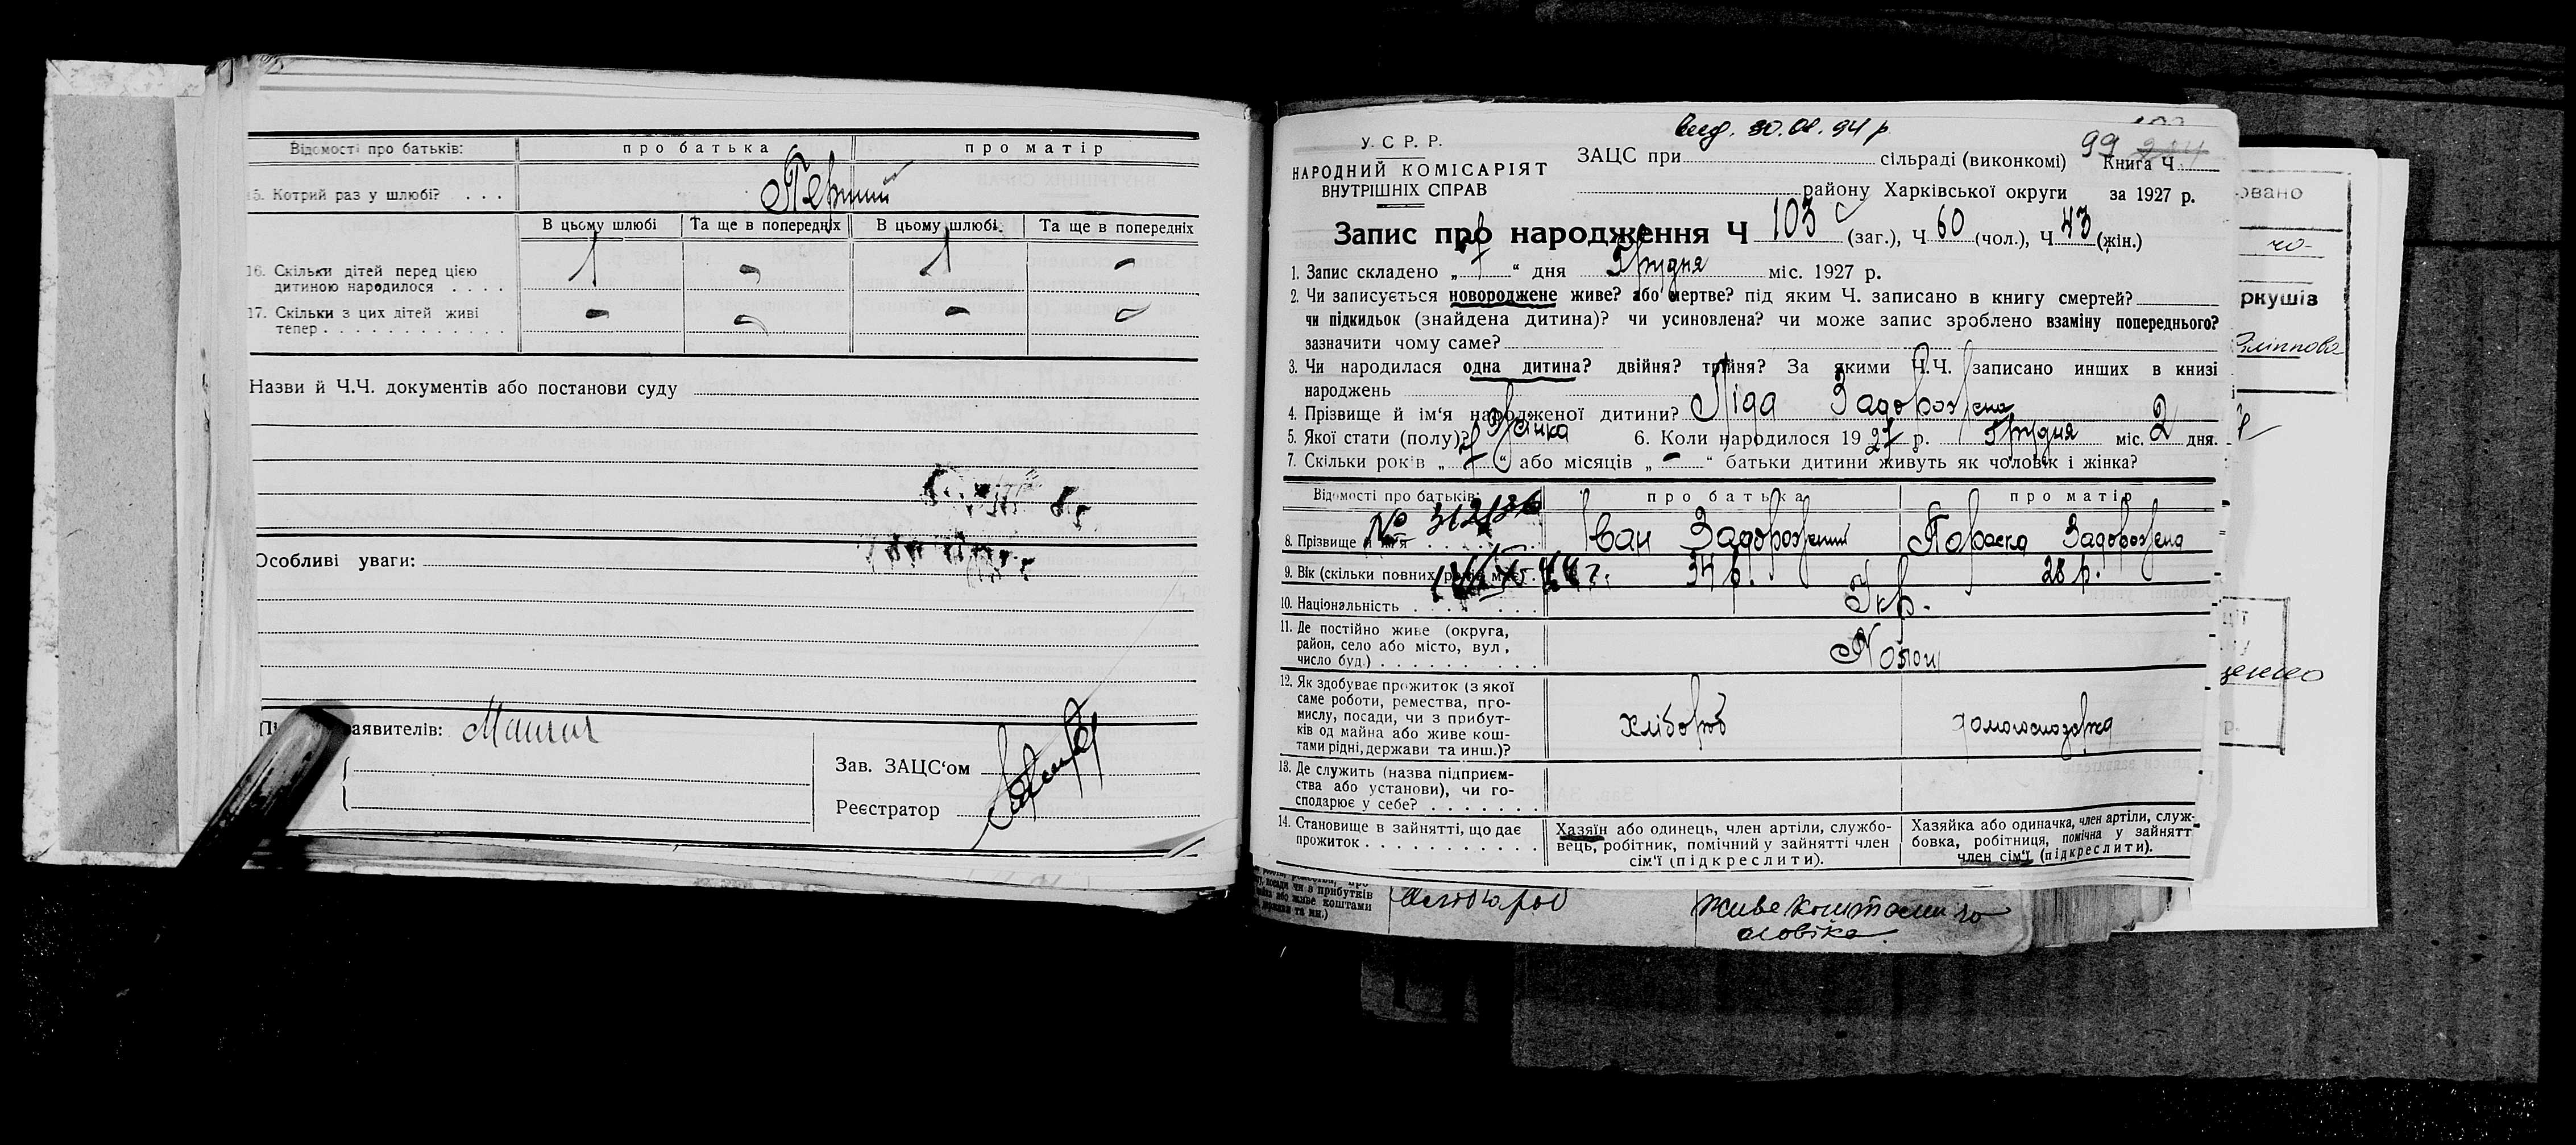 Відомості про батьків: про батька про матір
15. Котрий раз у шлюбі? . . . Перший
В цьому шлюбі Та ще в попередніх В цьому шлюбі Та ще в попередніх
16. Скільки дітей перед цією
дитиною народилося . . . . 1 - 1 -
17. Скільки з цих дітей живі
тепер . . . . . . . . . . . . - - - -
Назви й Ч.Ч. документів або постанови суду
Особливі уваги:
аявителів:
Зав. ЗАЦС‘ом
Реєстратор
вид. 30.08.94 р
У.С.Р.Р.
НАРОДНИЙ КОМІСАРІЯТ
ВНУТРІШНІХ СПРАВ
ЗАЦС при сільраді (виконкомі) 99 Книга Ч.
району Харківської округи за 1927 р.
Запис про народження Ч 103 (заг.), Ч 60 (чол.), Ч 43 (жін.)
1. Запис складено „ 7 “ дня Грудня міс. 1927 р.
2. Чи записується новороджене живе? або мертве? під яким Ч. записано в книгу смертей?
чи підкидьок (знайдена дитина)? чи усиновлена? чи може запис зроблено взаміну попереднього?
зазначити чому саме?
3. Чи народилася одна дитина? двійня? трійня? За якими Ч.Ч. записано инших в книзі
народжень
4. Прізвище й ім‘я народженої дитини? Ліда Задорожена
5. Якої стати (полу)? Жінка 6. Коли народилося 1927 р. Грудня міс. 2 дня.
7. Скільки років „ 7 “ або місяців „ - “ батьки дитини живуть як чоловік і жінка?
Відомості про батьків: про батька про матір
№ 312136
8. Прізвище й ім‘я Іван Задорожний Параска Задорожена
9. Вік (скільки повних років має) . 34 р. 28 р.
10. Національність . . . . . . . . Укр.
11. Де постійно живе (округа,
район, село або місто, вул,
число буд.) . . . . . . . . . .
12. Як здобуває прожиток (з якої
саме роботи, ремества, про-
мислу, посади, чи з прибут-
ків од майна або живе кош-
тами рідні, держави та инш.)? хлібороб домогосподарка
13. Де служить (назва підприєм-
ства або установи), чи го-
сподарює у себе? . . . . . . .
14. Становище в зайнятті, що дає
прожиток . . . . . . . . . . .
Хазяїн або одинець, член артіли, службо-
вець, робітник, помічний у зайнятті член
сім‘ї (підкреслити).
Хазяйка або одиначка, член артіли, служ-
бовка, робітниця, помічна у зайнятт
член сім‘ї (підкреслити).
посади чи з прибутків
або живе коштами
держави та ин.)
живе коштами чо
ловіка
овано
чо-
ркушів